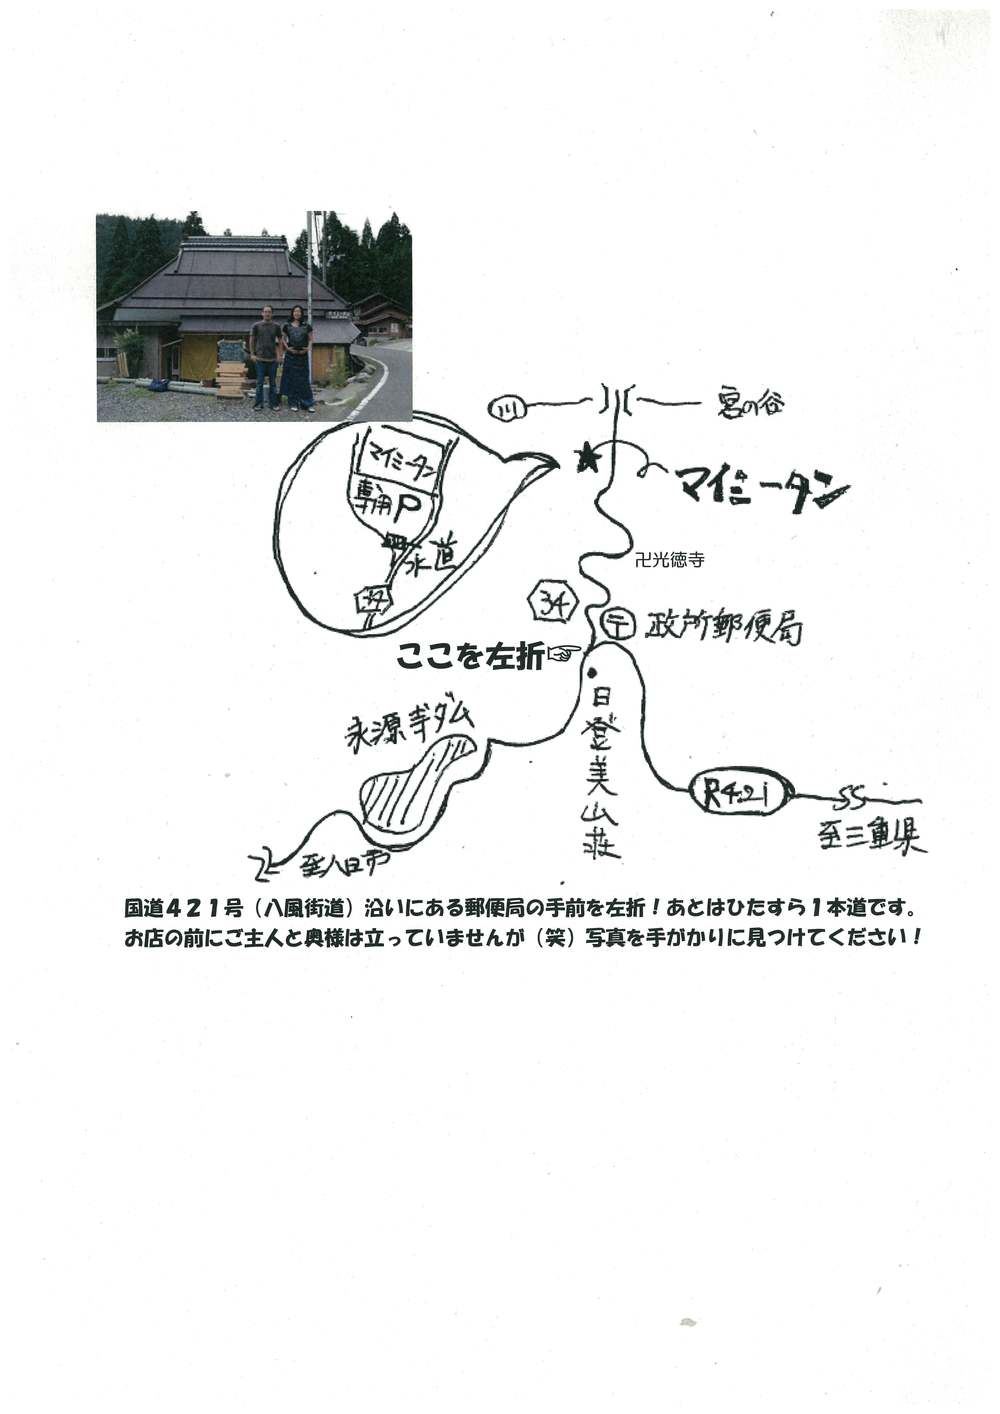 川
宮の谷
マイミータン
マイミータン
専用P
水道
34
卍光徳寺
34
〒
政所郵便局
ここを左折☞
日登美山荘
永源寺ダム
R421
至三重県
至八日市
国道４２１号（八風街道）沿いにある郵便局の手前を左折！あとはひたすら１本道です。
お店の前にご主人と奥様は立っていませんが（笑）写真を手がかりに見つけてください！